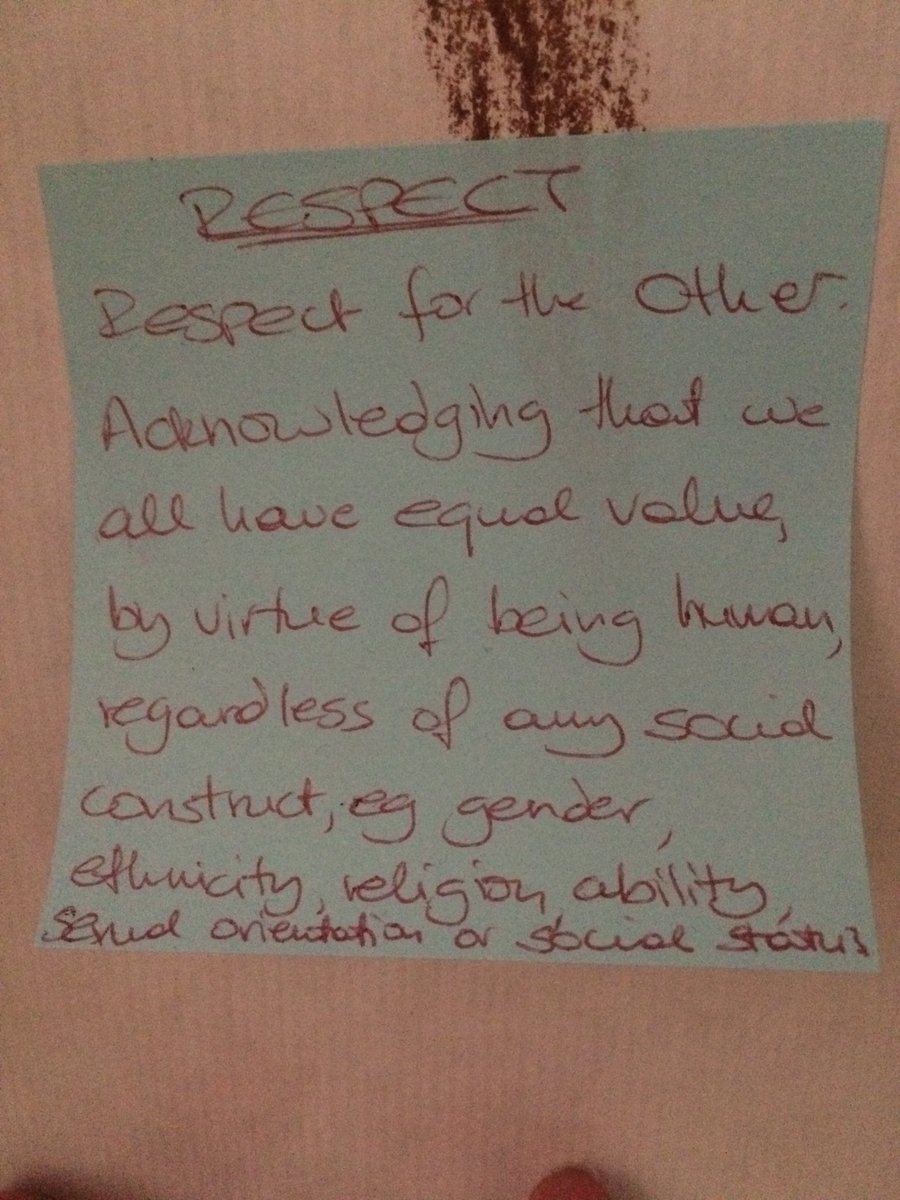 RESPECT
Respect for the Other.
Acknowledging that we
all have equal value,
by virtue of being human,
regardless of any social
construct, eg gender,
ethnicity, religion, ability,
sexual orientation or social status